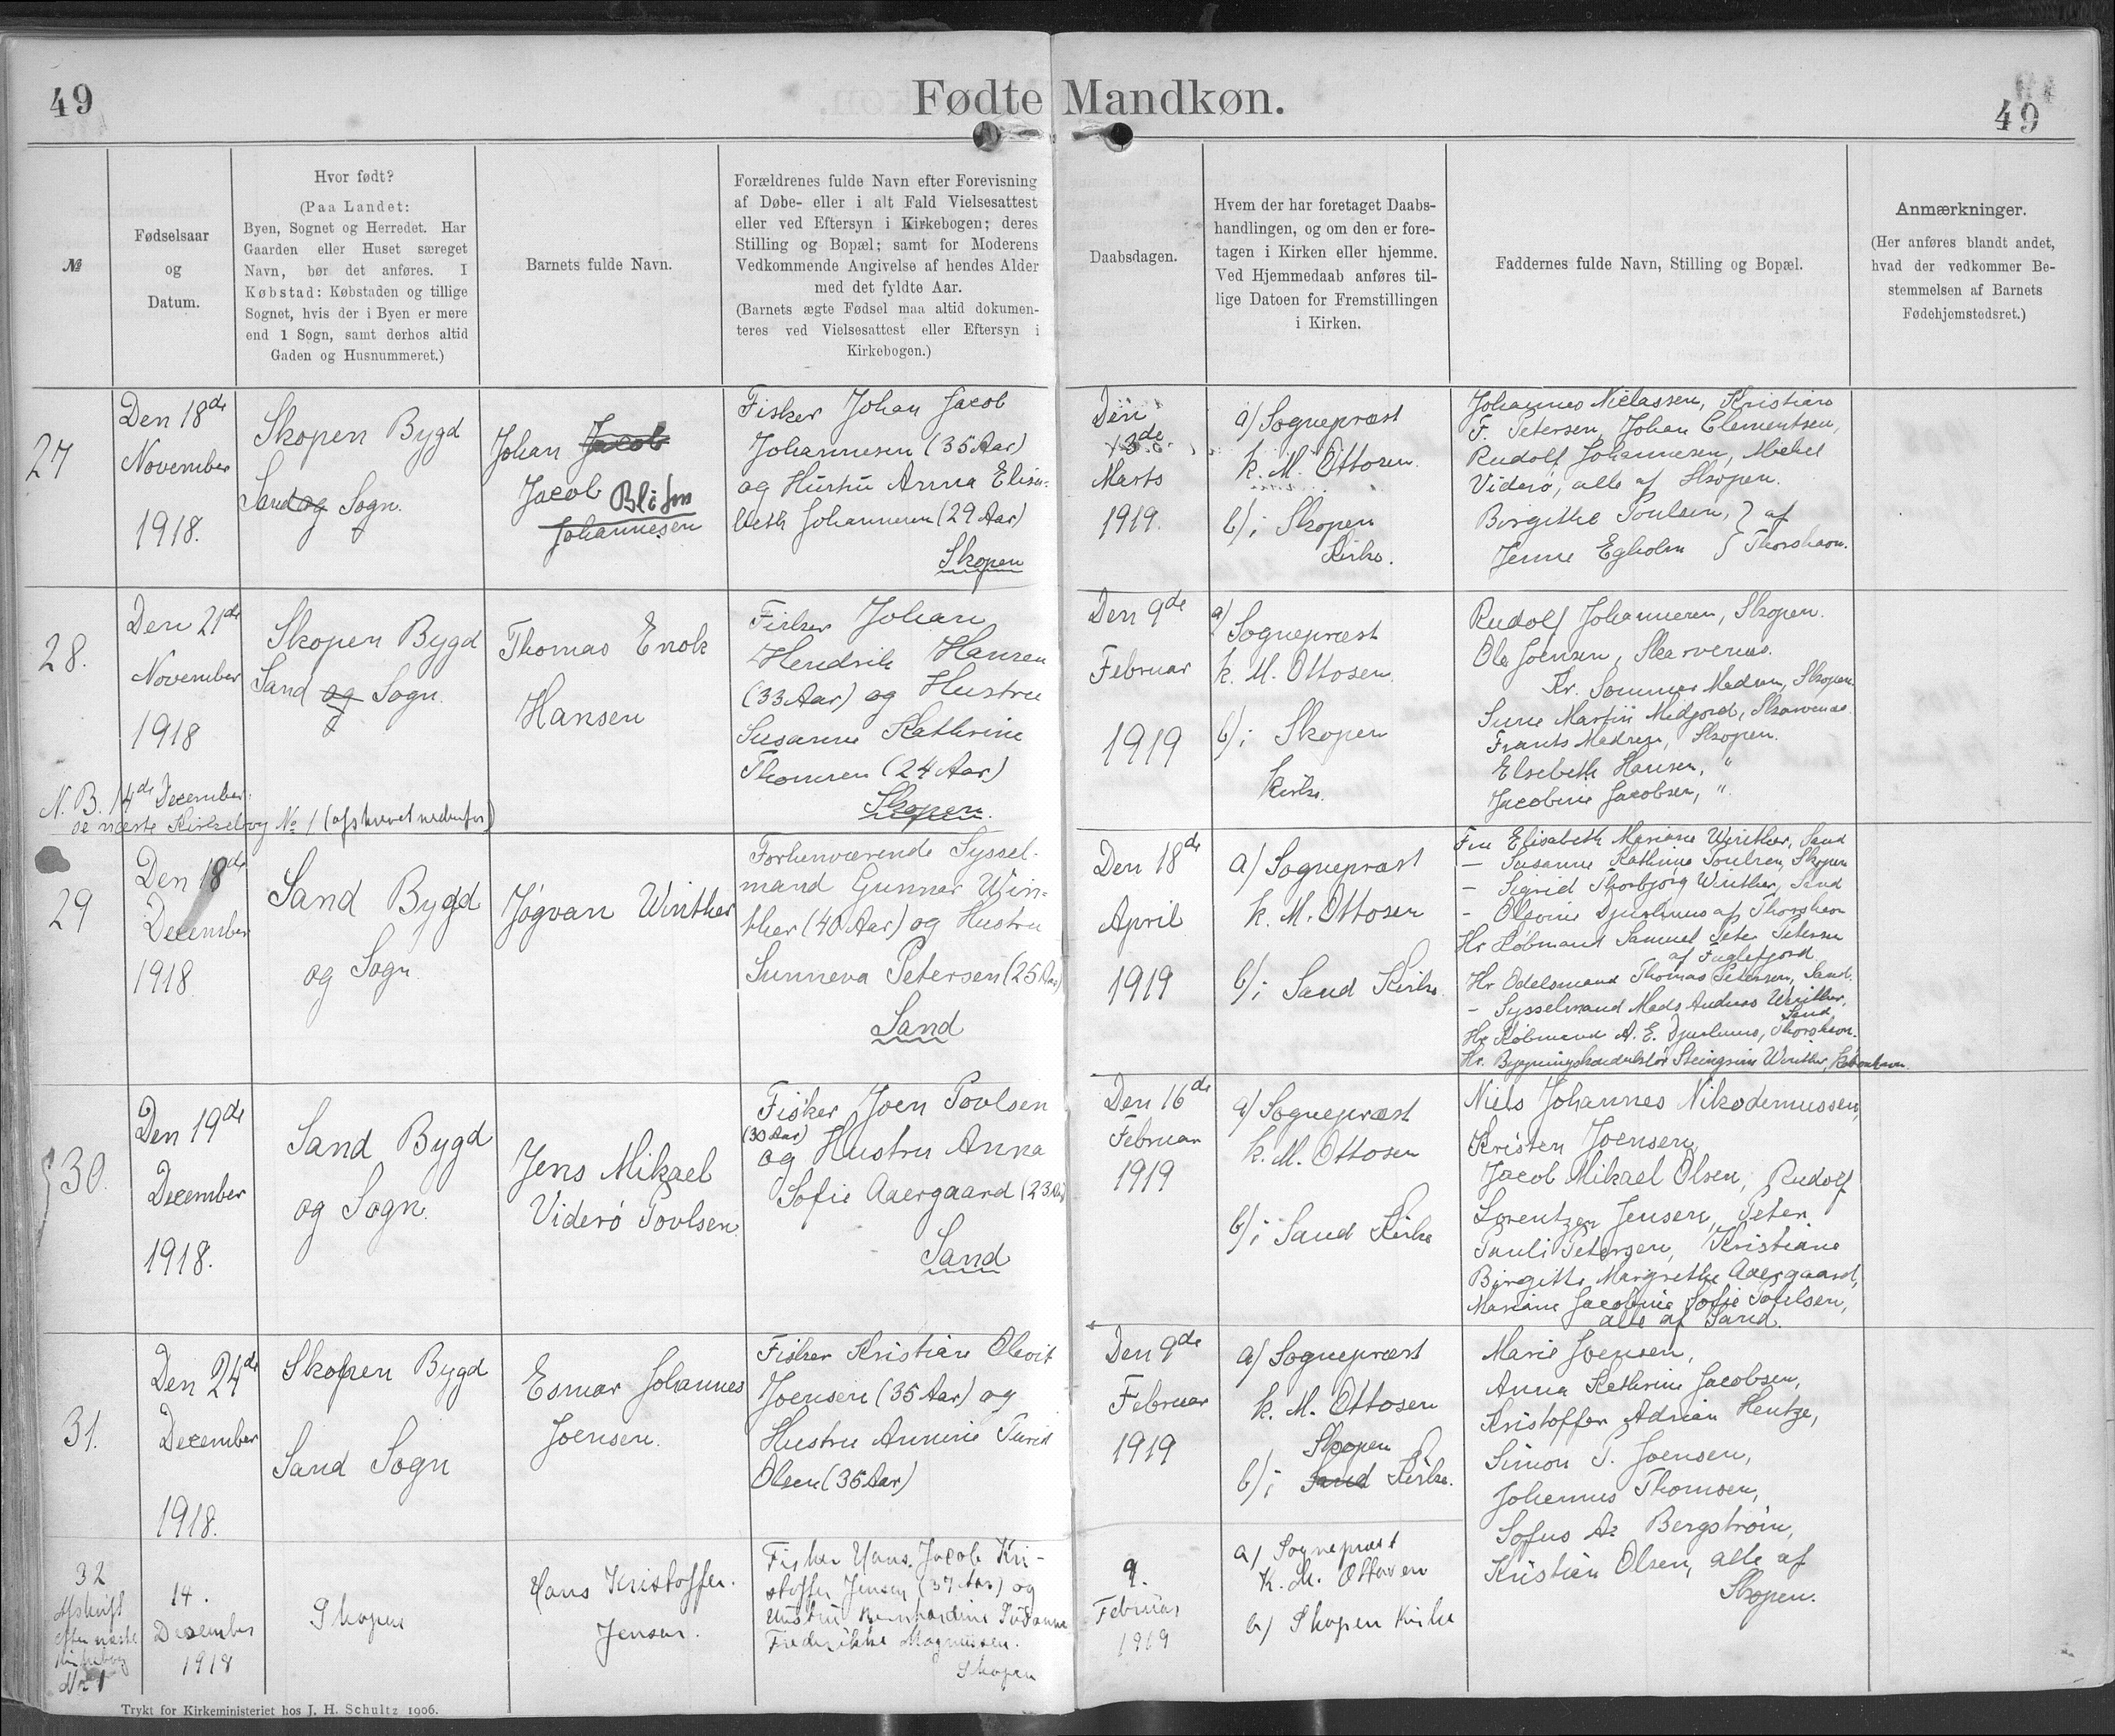 49
Fødte Mandkøn.
49
№
Fødselsaar
og
Datum.
Hvor født?
(Paa Landet:
Byen, Sognet og Herredet. Har
Gaarden eller Huset særeget
Navn, bør det anføres. I
Købstad: Købstaden og tillige
Sognet, hvis der i Byen er mere
end 1 Sogn, samt derhos altid
Gaden og Husnummeret.)
Barnets fulde Navn.
Forældrenes fulde Navn efter Forevisning
af Døbe- eller i alt Fald Vielsesattest
eller ved Eftersyn i Kirkebogen; deres
Stilling og Bopæl; samt for Moderens
Vedkommende Angivelse af hendes Alder
med det fyldte Aar.
(Barnets ægte Fødsel maa altid dokumen-
teres ved Vielsesattest eller Eftersyn i
Kirkebogen.)
Daabsdagen.
Hvem der har foretaget Daabs-
handlingen, og om den er fore-
tagen i Kirken eller hjemme.
Ved Hjemmedaab anføres til-
lige Datoen for Fremstillingen
i Kirken.
Faddernes fulde Navn, Stilling og Bopæl.
Anmærkninger.
(Her anføres blandt andet,
hvad der vedkommer Be-
stemmelsen af Barnets
Fødehjemstedsret.)
27
Den 18de
November
1918.
Skopen Bygd
Sand og Sogn.
Johan Jacob
Jacob
Johannesen
Fisker Johan Jacob
Johannesen (35 Aar)
og Hustru Anna Elisa-
beth Johannesen (29 Aar)
Skopen
Den
3de
Marts
1919.
a) Sognepræst
K. M. Ottosen.
b) i Skopen
Kirke.
Johannes Niclassen, Kristian
F. Petersen, Johan Clementsen,
Rudolf Johannesen, Mickel
Viderø, alle af Skopen.
Birgithe Poulsen, } af
Jenne Egholm } Thorshavn.
28.
Den 21de
November
1918
Skopen Bygd
Sand og Sogn.
Thomas Enok
Hansen
Fisker Johan
Hendrik Hansen
(33 Aar) og Hustru
Susanne Kathrine
Thomsen (24 Aar)
Skopen.
Den 9de
Februar
1919
a) Sognepræst
K. M. Ottosen.
b) i Skopen
Kirke.
Rudolf Johannesen, Skopen.
Ole Joensen, Skarvenæs.
Kr. Sommer Madsen, Skopen.
Sune Martin Midjord, Skarvenæs.
Frants Madsen, Skopen.
Elsebeth Hansen, "
Jacobine Jacobsen, ".
N. B. 14de December.
se næste Kirkebog No 1 (afskrevet nedenfor)
29
Den 18de
December
1918
Sand Bygd
og Sogn.
Jógvan Winther
Forhenværende Syssel-
mand Gunnar Win-
ther (40 Aar) og Hustru
Sunneva Petersen (25 Aar)
Sand
Den 18de
April
1919
a) Sognepræst
K. M. Ottosen
b) i Sand Kirke.
Fru Elisabeth Mariane Winther, Sand
— Susanne Kathrine Poulsen, Skopen
— Sigrid Thorbjørg Winther, Sand
— Olevine Djurhuus af Thorshavn
Hr Købmand Samuel Peter Petersen
af Fuglefjord.
Hr. Odelsmand Thomas Petersen, Sand.
— Sysselmand Mads Andreas Winther,
Sand
Hr Købmand A. E. Djurhuus, Thorshavn.
Hr. Bygningskonduktør Steingrim Winther, København.
30.
Den 19de
December
1918.
Sand Bygd
og Sogn.
Jens Mikael
Viderø Povlsen.
Fisker Joen Povlsen
(30 Aar)
og Hustru Anna
Sofie Aaergaard (23 Aar)
Sand
Den 16de
Februar
1919
a) Sognepræst
K. M. Ottosen
b) i Sand Kirke
Niels Johannes Nikodemussen,
Kristen Joensen,
Jacob Mikael Olsen, Rudolf
Lorentzen Jensen, Peter
Pauli Petersen, Kristiane
Birgitte Margrethe Aaergaard,
Mariane Jacobine Sofie Poulsen,
alle af Sand.
31.
Den 24de
December
1918.
Skopen Bygd
Sand Sogn
Esmar Johannes
Joensen.
Fisker Kristian Olevit
Joensen (35 Aar) og
Hustru Annine Turid
Olsen (35 Aar)
Den 9de
Februar
1919
a) Sognepræst
K. M. Ottosen
Skopen
b) i Sand Kirke.
Marie Joensen,
Anna Kathrine Jacobsen,
Kristoffer Adrian Hentze,
Simon P. Joensen,
Johannes Thomsen,
Sofus A. Bergstrøm,
Kristian Olsen, alle af
Skopen.
32
Afskrift
efter næste
Kirkebog
No 1
14.
Desember
1918
Skopen
Hans Kristoffer.
Jensen.
Fisker Hans Jacob Kri-
stoffer Jensen (37 Aar) og
Hustru Bernhardine Susanne
Frederikke Magnussen.
Skopen
9.
Februar
1919
a) Sognepræst
K. M. Ottosen
b) Skopen Kirke
Trykt for Kirkeministeriet hos J. H. Schultz 1906.